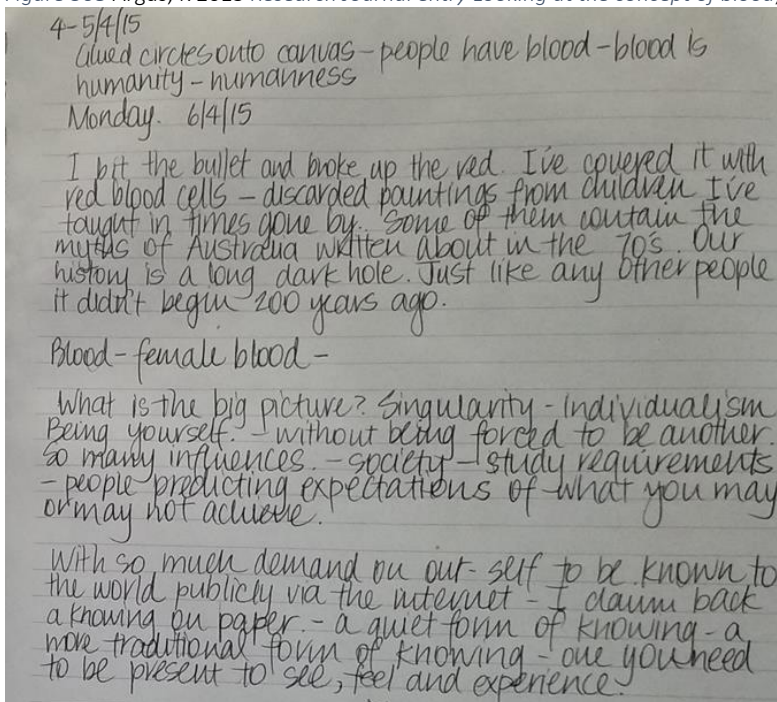 4-5/4/15
Glued circles onto canvas - people have blood - blood is
humanity - humanness
Monday. 6/4/15
I bit the bullet and broke up the red. I've covered it with
red blood cells - discarded paintings from children I've
taught in times gone by. Some of them contain the
myths of Australia written about in the 70's. Our
history is a long dark hole. Just like any other people
it didn't begin 200 years ago.
Blood - female blood -
What is the big picture? Singularity - individualism
Being yourself. - without being forced to be another.
So many influences. - society - study requirements
- people predicting expectations of what you may
or may not achieve.
With so much demand on out-self to be known to
the world publicly via the internet - I claim back
a knowing on paper. - a quiet form of knowing - a
more traditional form of knowing - one you need
to be present to see, feel and experience.